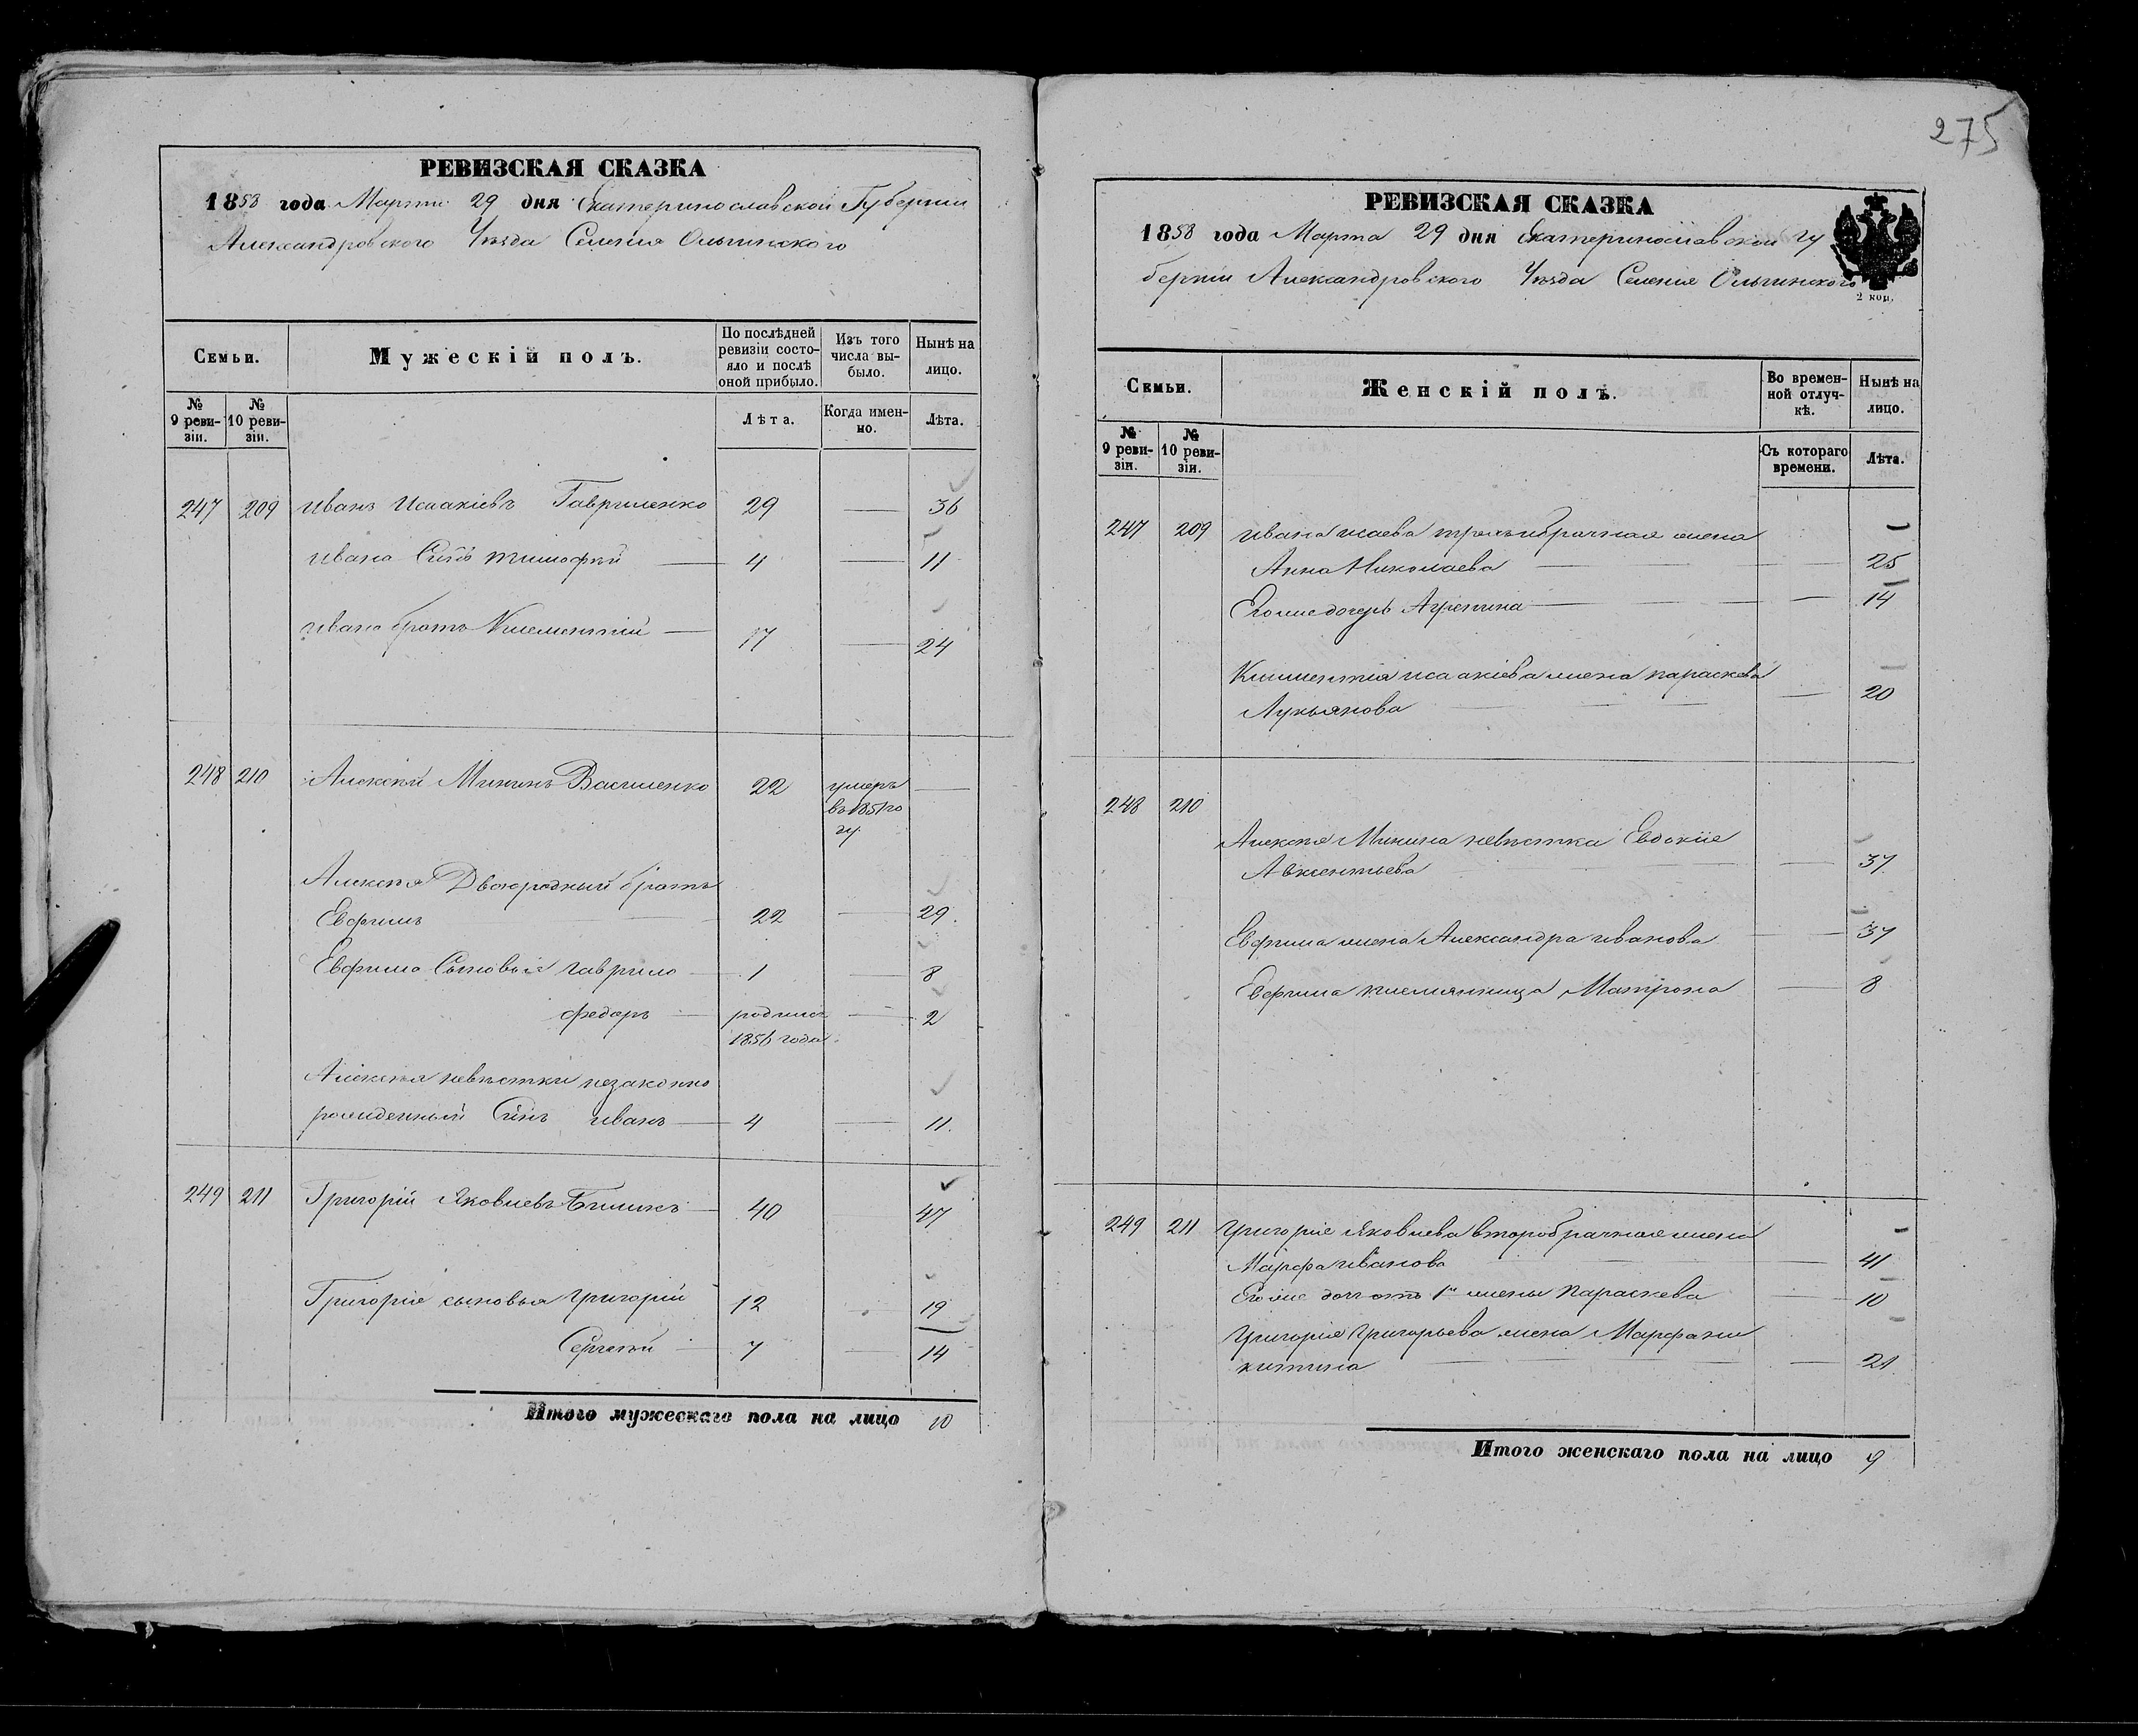 275
РЕВИЗСКАЯ СКАЗКА
1858 года Марта 29 дня Екатеринославской Губернии
Александровского Уѣзда Селенія Ольгинского
Семьи.
Мужескій полъ.
По послѣдней ревизіи состояло и послѣ оной прибыло.
Изъ того числа выбыло.
Нынѣ на лицо.
№ 9 ревизіи.
№ 10 ревизіи.
Лѣта.
Когда именно.
Лѣта.
247 209 Иванъ Исаакіевъ Гавриленко 29 — 36
Ивана Сынъ Тимофѣй — 4 — 11
Ивана братъ Климентій — 17 — 24
248 210 Алексѣй Мининъ Василенко 22 умеръ —
въ 1851 го
ду
Алексѣя Двоюродный братъ
Евфимъ — 22 — 29.
Евфима Сыновья Гаврило — 1 — 8
Федоръ — родился — 2
1856 года
Алексѣя невѣстки незаконно
рожденный Сынъ Иванъ — 4 — 11.
249 211 Григорій Яковлевъ — 40 — 47
Григорія сыновья Григорій 12 — 19
Сергѣй — 7 — 14
Итого мужескаго пола на лицо 10
РЕВИЗСКАЯ СКАЗКА
1858 года Марта 29 дня Екатеринославской Гу
берніи Александровского Уѣзда Селенія Ольгинского
2 коп.
Семьи.
Женскій полъ.
Во временной отлучкѣ.
Нынѣ на лицо.
№ 9 ревизіи.
№ 10 ревизіи.
Съ котораго времени.
Лѣта.
247 209 Ивана Исаева жена
Анна Николаева — — 25
Его же дочерь Агрепина — — 14
Климентія Исаакіева жена Параскева
Лукьянова — — 20
248 210
Алексѣя Минина невѣстка Евдокія
Авксентьева — — 37.
Евфима жена Александра Иванова — 37
Евфима племянница Матрона — 8
249 211 Григорія Яковлева второбрачная жена
Марфа Иванова — — 41
Его же дочь отъ 1й жены Параскева — 10
Григорія Григорьева жена Марфа Ни
китина — — 21.
Итого женскаго пола на лицо 9